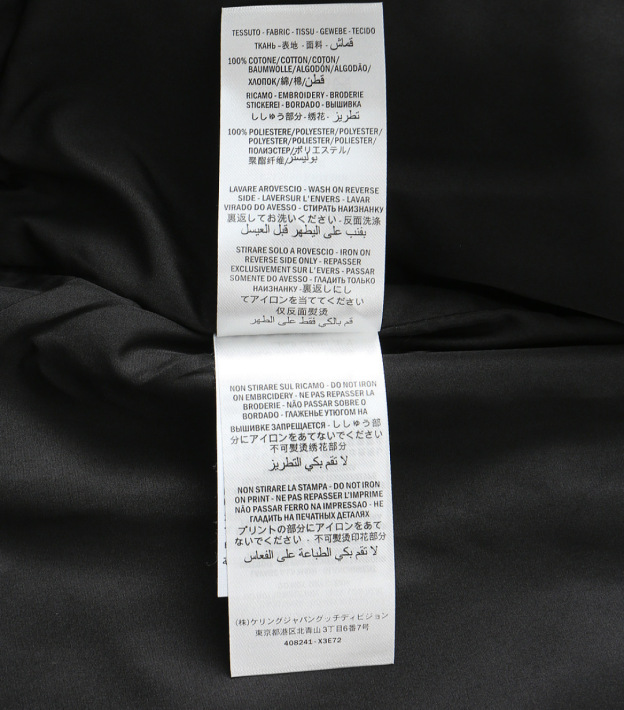 TESSUTO - FABRIC - TISSU - GEWEBE - TECIDO
ТКАНЬ - 表地 - 面料 - قماش
100% COTONE/COTTON/COTON/
BAUMWOLLE/ALGODÓN/ALGODÃO/
ХЛОПОК/綿/棉/قطن
RICAMO - EMBROIDERY - BRODERIE
STICKEREI - BORDADO - ВЫШИВКА
ししゅう部分 - 绣花 - تطريز
100% POLIESTERE/POLYESTER/POLYESTER/
POLYESTER/POLIESTER/POLIESTER/
ПОЛИЭСТЕР/ポリエステル/
聚酯纤维/بوليستر
LAVARE AROVESCIO - WASH ON REVERSE
SIDE - LAVERSUR L'ENVERS - LAVAR
VIRADO DO AVESSO - СТИРАТЬ НАИЗНАНКУ
裏返してお洗いください - 反面洗涤
يقنب على اليطهر قبل العيسل
STIRARE SOLO A ROVESCIO - IRON ON
REVERSE SIDE ONLY - REPASSER
EXCLUSIVEMENT SUR L'EVERS - PASSAR
SOMENTE DO AVESSO - ГЛАДИТЬ ТОЛЬКО
НАИЗНАНКУ - 裏返しにし
てアイロンを当ててください
仅反面熨烫
قم بالكي فقط على الظهر
NON STIRARE SUL RICAMO - DO NOT IRON
ON EMBRCIDERY - NE PAS REPASSER LA
BRODERIE - NÃO PASSAR SOBRE O
BORDADO - ГЛАЖЕНЬЕ УТЮГОМ НА
ВЫШИВКЕ ЗАПРЕЩАЕТСЯ - ししゅう部
分にアイロンをあてないでください
不可熨烫绣花部分
لا تقم بكي التطريز
NON STIRARE LA STAMPA - DO NOT IRON
ON PRINT - NE PAS REPASSER L'IMPRIME
NÃO PASSAR FERRO NA IMPRESSAO - НЕ
ГЛАДИТЬ НА ПЕЧАТНЫХ ДЕТАЛЯХ
プリントの部分にアイロンをあて
ないでください - 不可熨烫印花部分
لا تقم بكي الطباعة على الفعاس
(株)ケリングジャパングッチディビジョン
東京都港区北青山3丁目6番7号
408241-X3E72